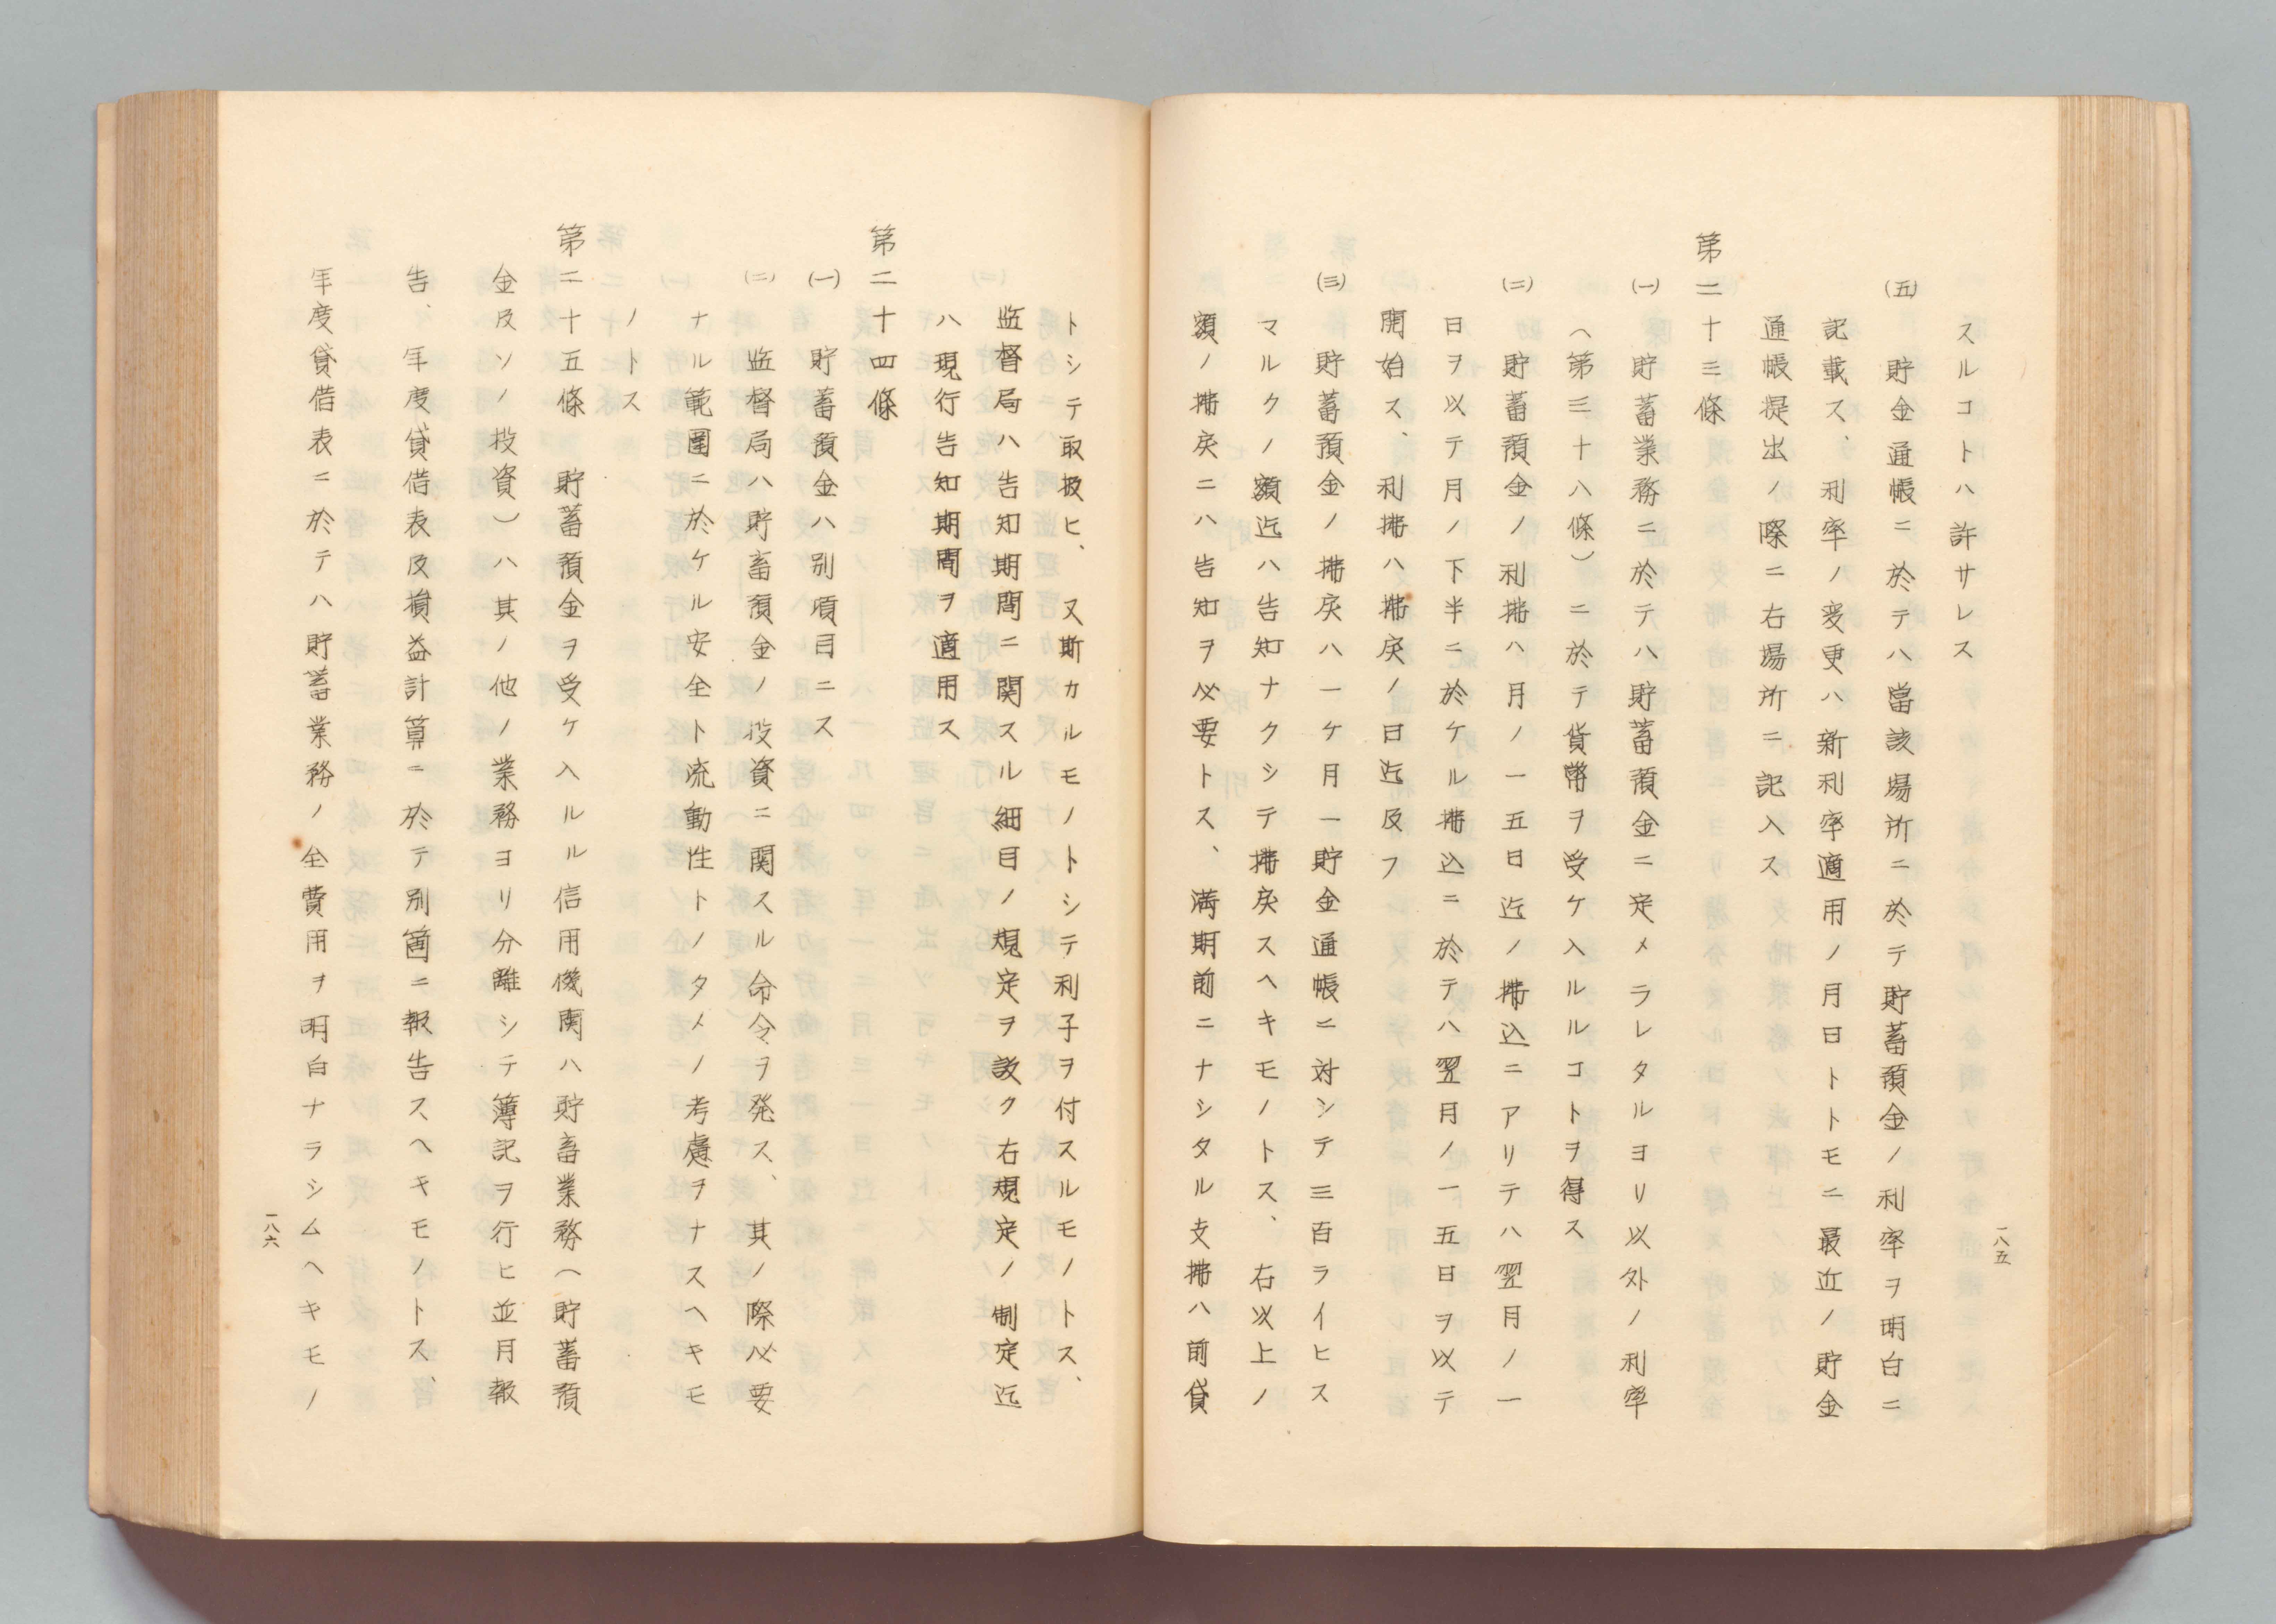 スルコトハ許サレス
(五) 貯金通帳ニ於テハ當該場所ニ於テ貯蓄預金ノ利率ヲ明白ニ
記載ス、利率ノ変更ハ新利率適用ノ月日トトモニ最近ノ貯金
通帳提出ノ際ニ右場所ニ記入ス
第二十三條
(一) 貯蓄業務ニ於テハ貯蓄預金ニ定メラレタルヨリ以外ノ利率
(第三十八條)ニ於テ貨幣ヲ受ケ入ルルコトヲ得ス
(二) 貯蓄預金ノ利拂ハ月ノ一五日迄ノ拂込ニアリテハ翌月ノ一
日ヲ以テ月ノ下半ニ於ケル拂込ニ於テハ翌月ノ一五日ヲ以テ
開始ス、利拂ハ拂戻ノ日迄及フ
(三) 貯蓄預金ノ拂戻ハ一ケ月一貯金通帳ニ対シテ三百ライヒス
マルクノ額迄ハ告知ナクシテ拂戻スヘキモノトス、右以上ノ
額ノ拂戻ニハ告知ヲ必要トス、満期前ニナシタル支拂ハ前貸
一八五
トシテ取扱ヒ、又斯カルモノトシテ利子ヲ付スルモノトス、
監督局ハ告知期間ニ関スル細目ノ規定ヲ設ク右規定ノ制定迄
ハ現行告知期間ヲ適用ス
第二十四條
(一) 貯蓄預金ハ別項目ニス
(二) 監督局ハ貯畜預金ノ投資ニ関スル命令ヲ発ス、其ノ際必要
ナル範圍ニ於ケル安全ト流動性トノタメノ考慮ヲナスヘキモ
ノトス
第二十五條 貯蓄預金ヲ受ケ入ルル信用機関ハ貯畜業務(貯蓄預
金及ソノ投資)ハ其ノ他ノ業務ヨリ分離シテ簿記ヲ行ヒ並月報
告、年度貸借表及損益計算ニ於テ別箇ニ報告スヘキモノトス、
年度貸借表ニ於テハ貯蓄業務ノ全費用ヲ明白ナラシムヘキモノ
一八六